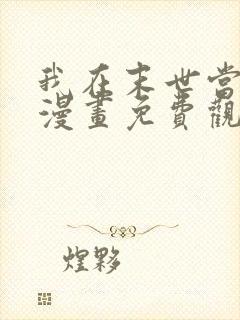 我在末世当
漫畫免費觀
煌夥